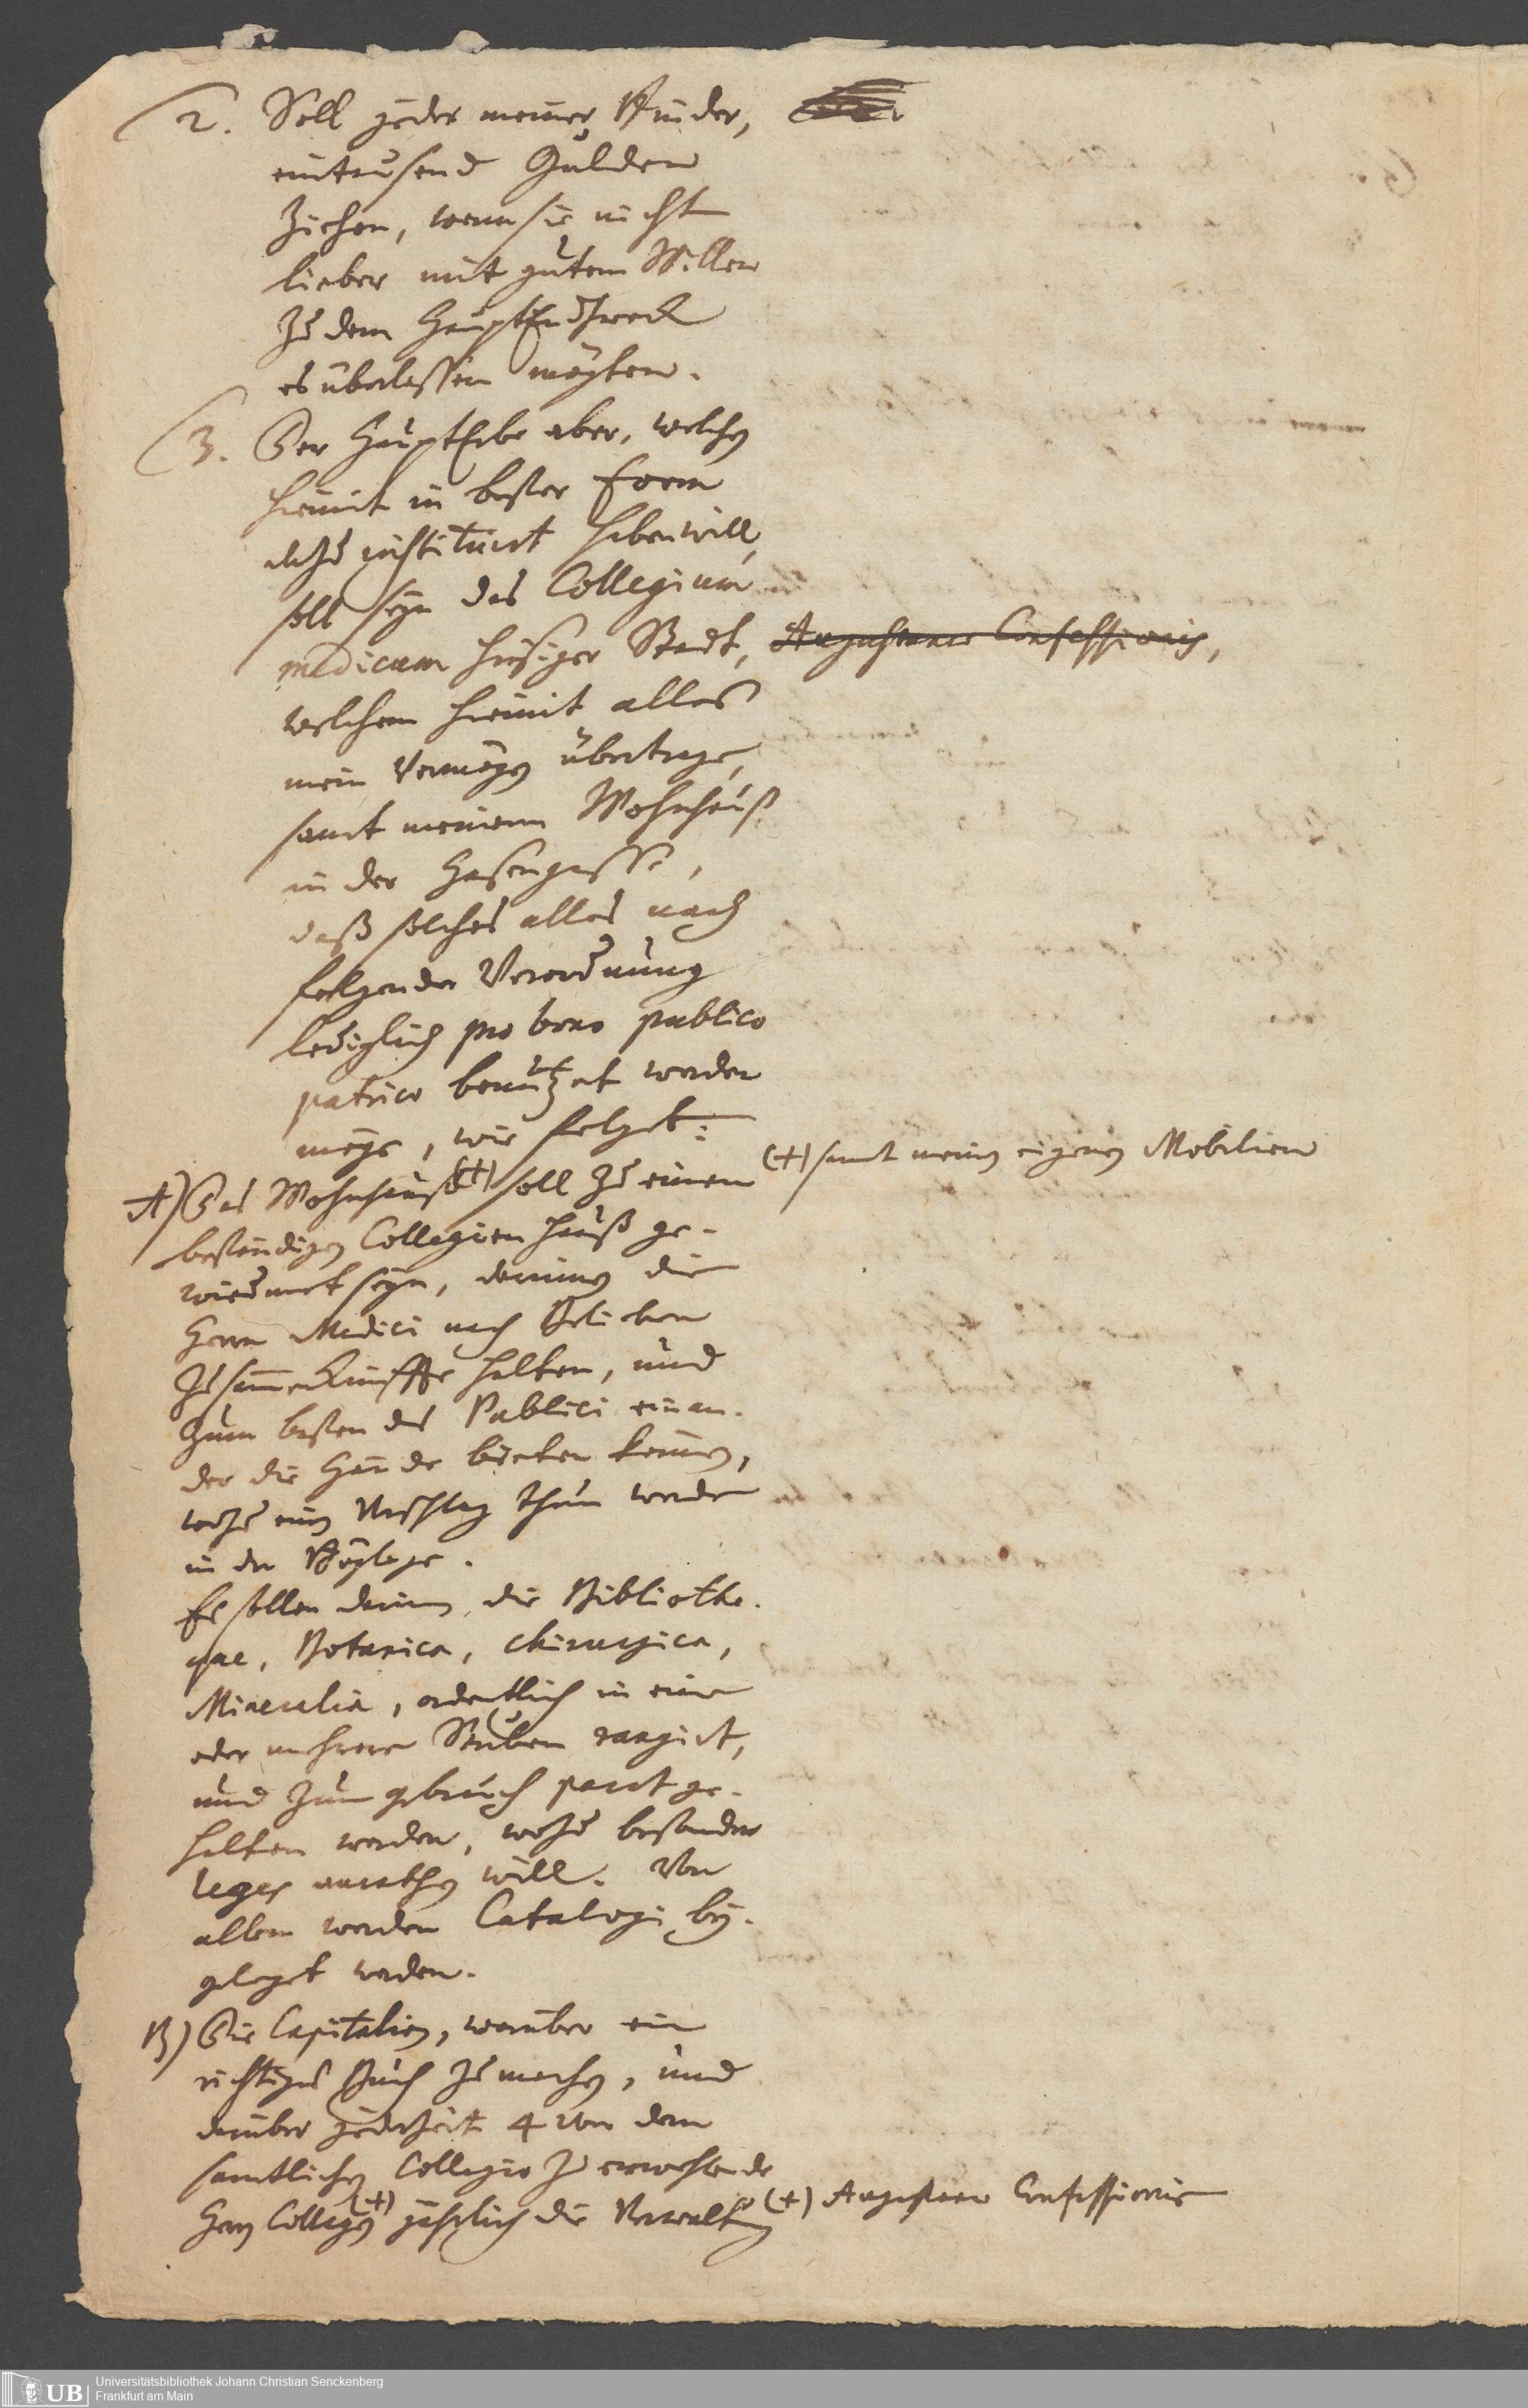 2. Soll jeder meiner Brüder,
eintausend Gulden
ziehen, wenn sie nicht
lieber mit gutem Willen
zu dem HauptEndzweck
es überlassen mögten.
3. Der HauptErbe aber, welchen
hiemit in bester Form
dazu instituirt haben will,
soll seyn das Collegium
medicum hiesiger Stadt, Augustanae Confessionis,
welchem hiemit alles
mein Vermögen übertrage,
samt meinem Wohnhauß
in der Hasengasse,
daß solches alles nach
folgender Verordnung
lediglich pro bono publico
patrico benutzet werden
möge, wie folget:
A) Das Wohnhauß (+) soll zu einem (+) samt meinen eigenen Mobilien
beständigen Collegien Hauß ge-
wiedmet seyn, darinnen die
Herrn Medici nach Belieben
Zusammenkünffte halten, und
zum besten des Publici einan-
der die Hände bieten können,
wozu einen Vorschlag thun werde
in der Beylage.
Es sollen darinn, die Bibliothe-
que, Botanica, Chirurgica,
Mineralia, ordentlich in eine
oder mehrere Stuben rangirt,
und zum gebrauch parat ge-
halten werden, wozu besondere
leges anrathen will. Von
allem werden Catalogi bey-
geleget werden.
B) Die Capitalien, worüber ein
richtiges Buch zu machen, und
darüber jederzeit 4 von dem
samtlichen Collegio zu erwehlende
Herrn Collegen (+) jährlich die Verwaltung (+) Augustanae Confessionis
UB Universitätsbibliothek Johann Christian Senckenberg
Frankfurt am Main